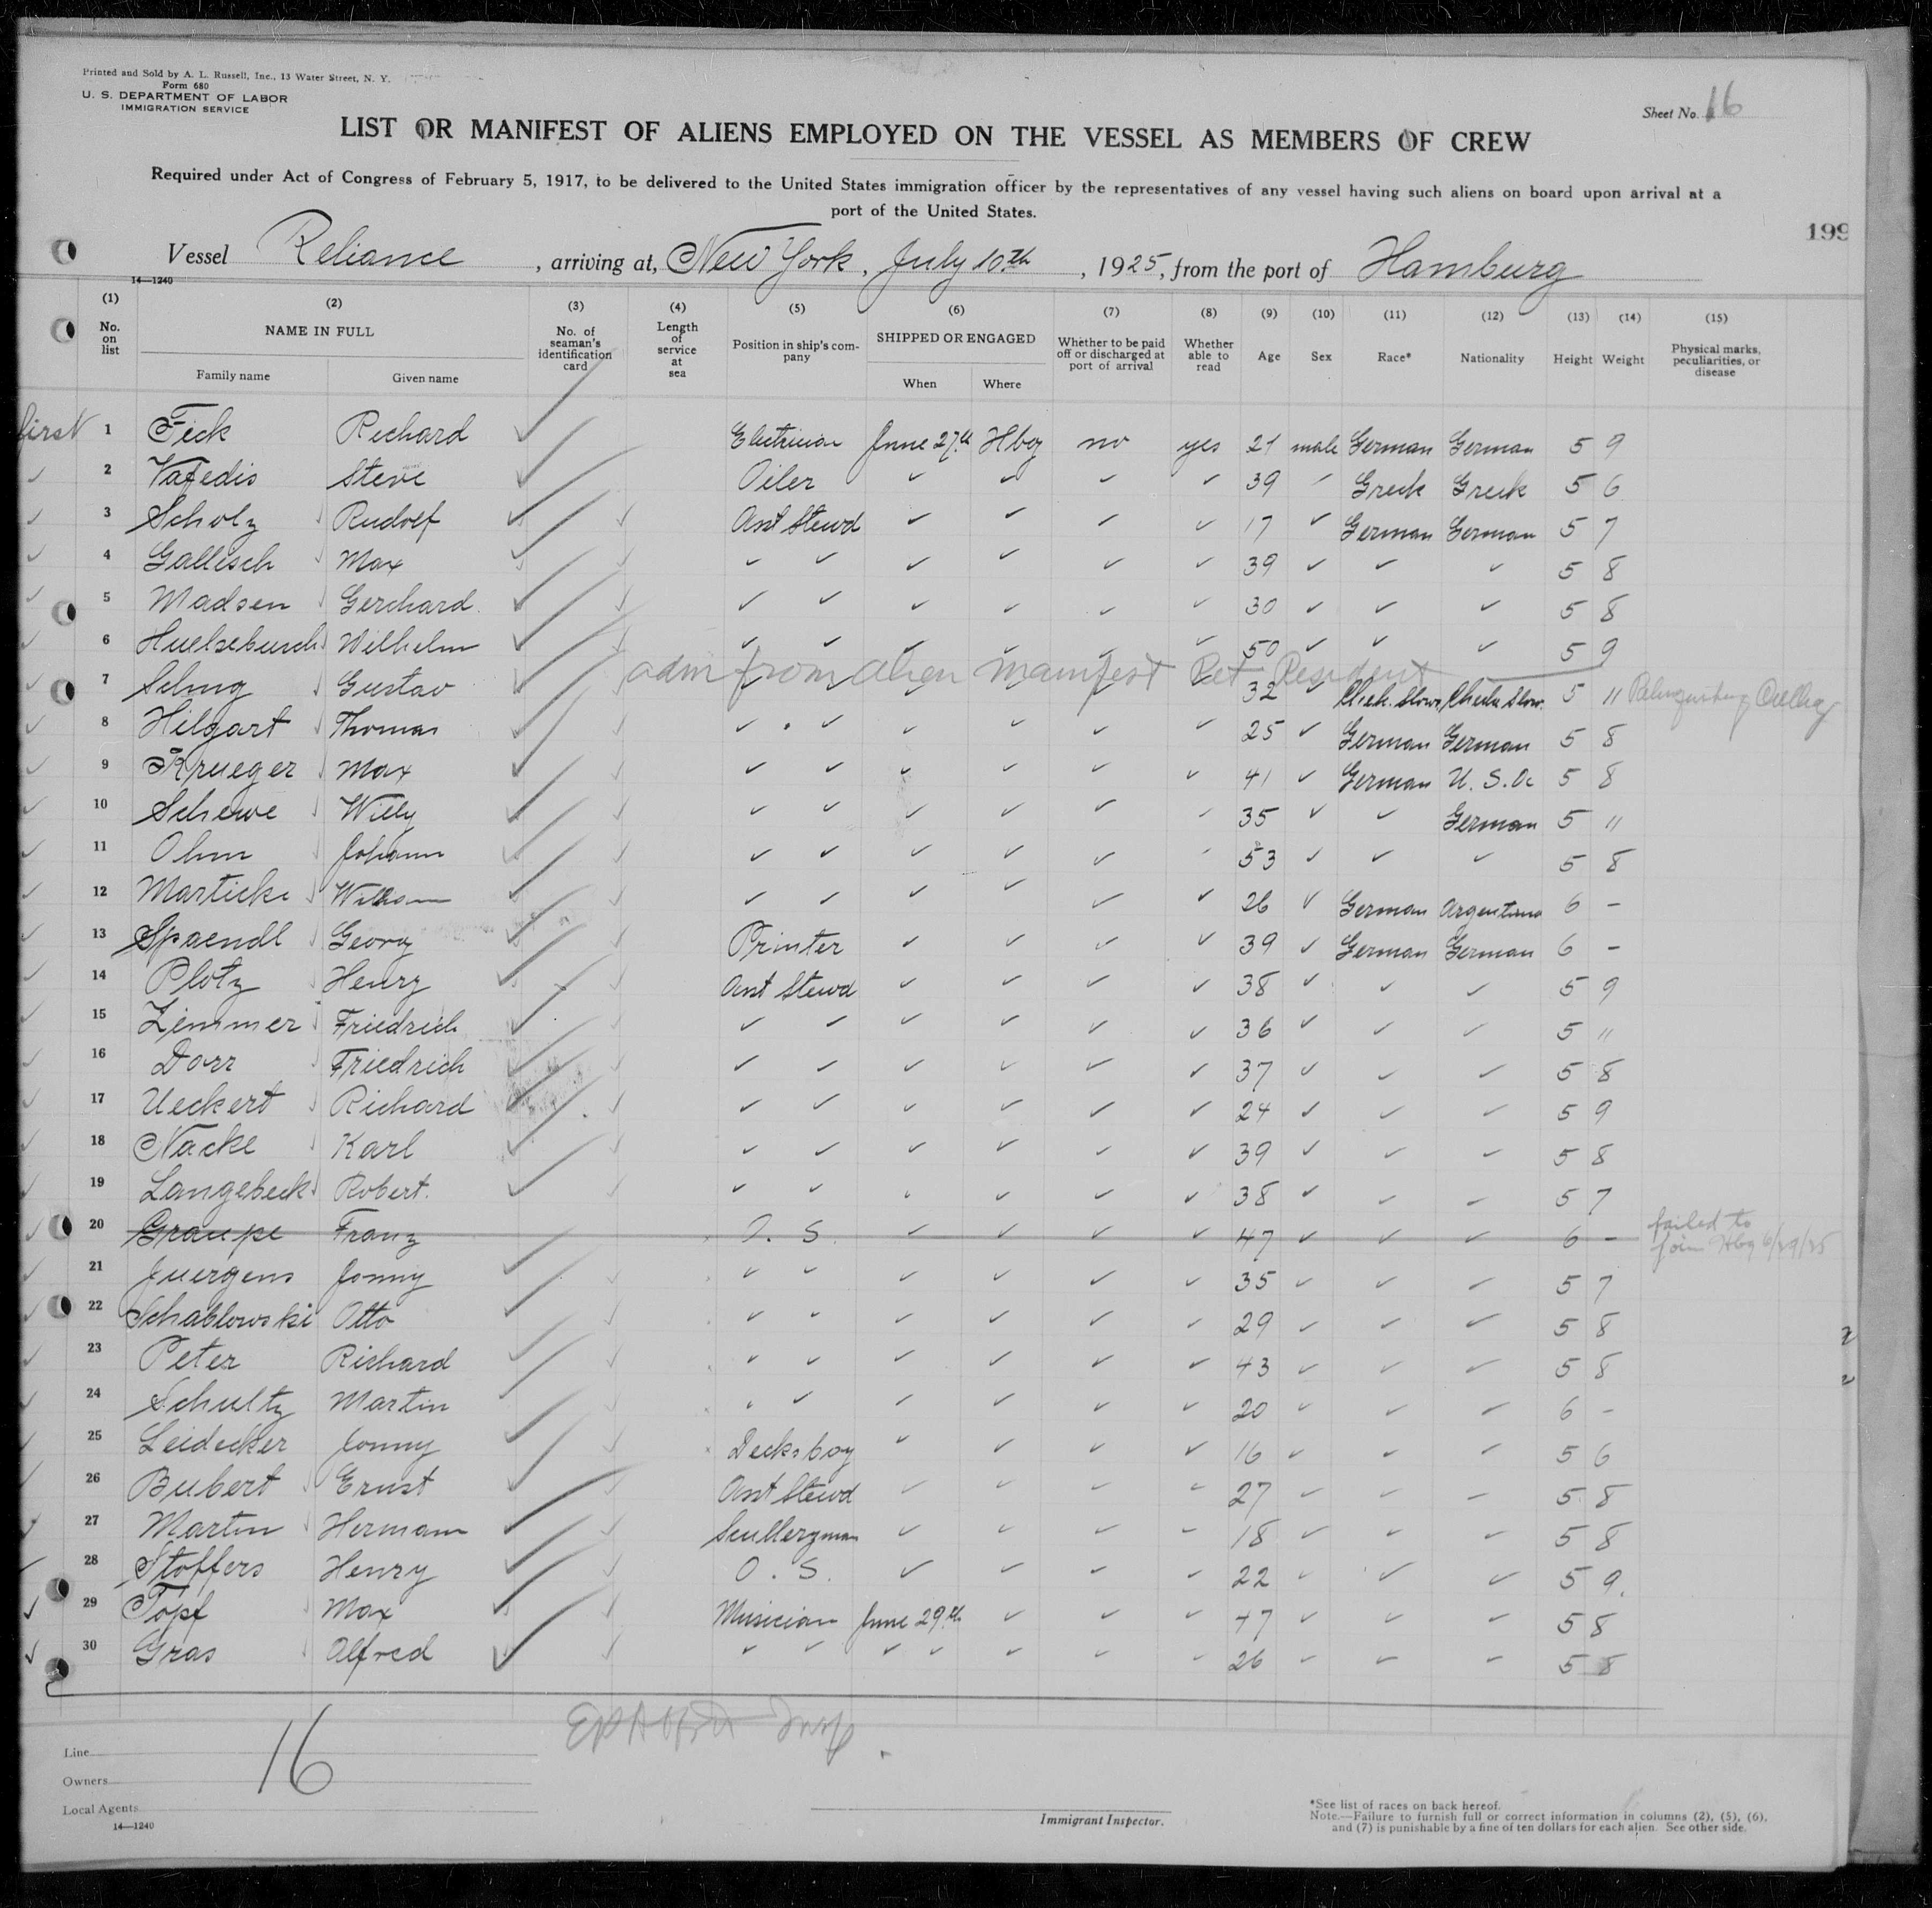 Printed and Sold by A. L. Russell, Inc., 13 Water Street, N. Y.
Form 680
U. S. DEPARTMENT OF LABOR
IMMIGRATION SERVICE
Sheet No. 16
LIST OR MANIFEST OF ALIENS EMPLOYED ON THE VESSEL AS MEMBERS OF CREW
Required under Act of Congress of February 5, 1917, to be delivered to the United States immigration officer by the representatives of any vessel having such aliens on board upon arrival at a
port of the United States.
199
Vessel Reliance, arriving at, New York, July 10th, 1925, from the port of Hamburg
14—1240
(1) No. on list (2) NAME IN FULL Family name Given name (3) No. of seaman's identification card (4) Length of service at sea (5) Position in ship's company (6) SHIPPED OR ENGAGED When Where (7) Whether to be paid off or discharged at port of arrival (8) Whether able to read (9) Age (10) Sex (11) Race* (12) Nationality (13) Height (14) Weight (15) Physical marks, peculiarities, or disease
first 1 Fick Richard ✓ Electrician June 27th Hbg no yes 21 male German German 5 9
2 Vafedis Steve Oiler ✓ ✓ ✓ ✓ 39 ✓ Greek Greek 5 6
3 Scholz Rudolf Asst Stewd ✓ ✓ ✓ ✓ 17 ✓ German German 5 7
4 Gallisch Max ✓ ✓ ✓ ✓ ✓ ✓ 39 ✓ ✓ ✓ 5 8
5 Madsen Gerchard ✓ ✓ ✓ ✓ ✓ ✓ 30 ✓ ✓ ✓ 5 8
6 Huelsebusch Wilhelm ✓ ✓ ✓ ✓ ✓ ✓ 50 ✓ ✓ ✓ 5 9
adm from alien manifest Ret Resident
7 Seling Gustav 32 ✓ 5 11 Relinquishing Calling
8 Hilgart Thomas ✓ ✓ ✓ ✓ ✓ ✓ 25 ✓ German German 5 8
9 Krueger Max ✓ ✓ ✓ ✓ ✓ ✓ 41 ✓ German U. S. A. 5 8
10 Schewe Willy ✓ ✓ ✓ ✓ ✓ ✓ 35 ✓ ✓ German 5 11
11 Ohm Johann ✓ ✓ ✓ ✓ ✓ ✓ 53 ✓ ✓ ✓ 5 8
12 Marticke William ✓ ✓ ✓ ✓ ✓ ✓ 26 ✓ German Argentina 6 -
13 Spaendl Georg Printer ✓ ✓ ✓ ✓ 39 ✓ German German 6 -
14 Plotz Henry Asst Stewd ✓ ✓ ✓ ✓ 38 ✓ ✓ ✓ 5 9
15 Zimmer Friedrich ✓ ✓ ✓ ✓ ✓ ✓ 36 ✓ ✓ ✓ 5 11
16 Dorr Friedrich ✓ ✓ ✓ ✓ ✓ ✓ 37 ✓ ✓ ✓ 5 8
17 Ueckert Richard ✓ ✓ ✓ ✓ ✓ ✓ 24 ✓ ✓ ✓ 5 9
18 Nacke Karl ✓ ✓ ✓ ✓ ✓ ✓ 39 ✓ ✓ ✓ 5 8
19 Langebeck Robert ✓ ✓ ✓ ✓ ✓ ✓ 38 ✓ ✓ ✓ 5 7
20 Graupe Franz O. S. ✓ ✓ ✓ ✓ 47 ✓ ✓ ✓ 6 - failed to join Hbg 6/29/25
21 Juergens Jonny ✓ ✓ ✓ ✓ ✓ ✓ 35 ✓ ✓ ✓ 5 7
22 Schablowski Otto ✓ ✓ ✓ ✓ ✓ ✓ 29 ✓ ✓ ✓ 5 8
23 Peter Richard ✓ ✓ ✓ ✓ ✓ ✓ 43 ✓ ✓ ✓ 5 8
24 Schultz Martin ✓ ✓ ✓ ✓ ✓ ✓ 20 ✓ ✓ ✓ 6 -
25 Leidecker Jonny Decksboy ✓ ✓ ✓ ✓ 16 ✓ ✓ ✓ 5 6
26 Bubert Ernst Asst Stewd ✓ ✓ ✓ ✓ 27 ✓ ✓ ✓ 5 8
27 Martin Hermann Sculleryman ✓ ✓ ✓ ✓ 18 ✓ ✓ ✓ 5 8
28 Stoffers Henry O. S. ✓ ✓ ✓ ✓ 22 ✓ ✓ ✓ 5 9
29 Topf Max Musician June 29th ✓ ✓ ✓ 47 ✓ ✓ ✓ 5 8
30 Gras Alfred ✓ ✓ ✓ ✓ ✓ ✓ ✓ 26 ✓ ✓ ✓ 5 8
Insp.
Line
16
Owners
Local Agents
14—1240
Immigrant Inspector.
*See list of races on back hereof.
Note.—Failure to furnish full or correct information in columns (2), (5), (6),
and (7) is punishable by a fine of ten dollars for each alien. See other side.